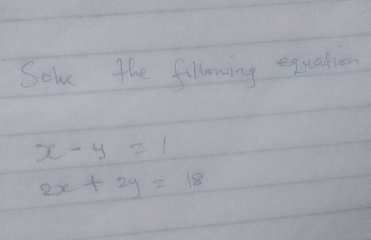 Solve the following equation
x - y = 1
2x + 2y = 18